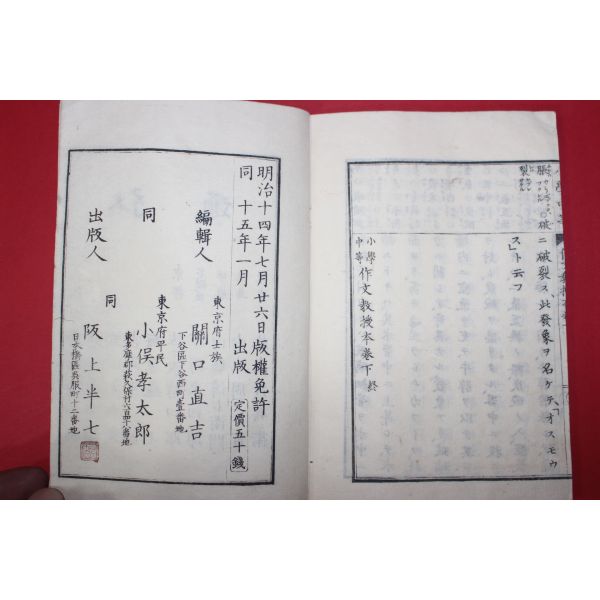 破ニ破裂ス此發象ヲ名ケテオスモウ
ストト云フ
小學
中等
作文教授本卷下終
明治十四年七月廿六日版權免許
同 十五年一月 出版
定價五十錢
東京府士族
編輯人 關口直吉
下谷區下谷西町壹番地
東京府平民
同 小俣孝太郎
同
出版人 阪上半七
日本橋區吳服町十二番地